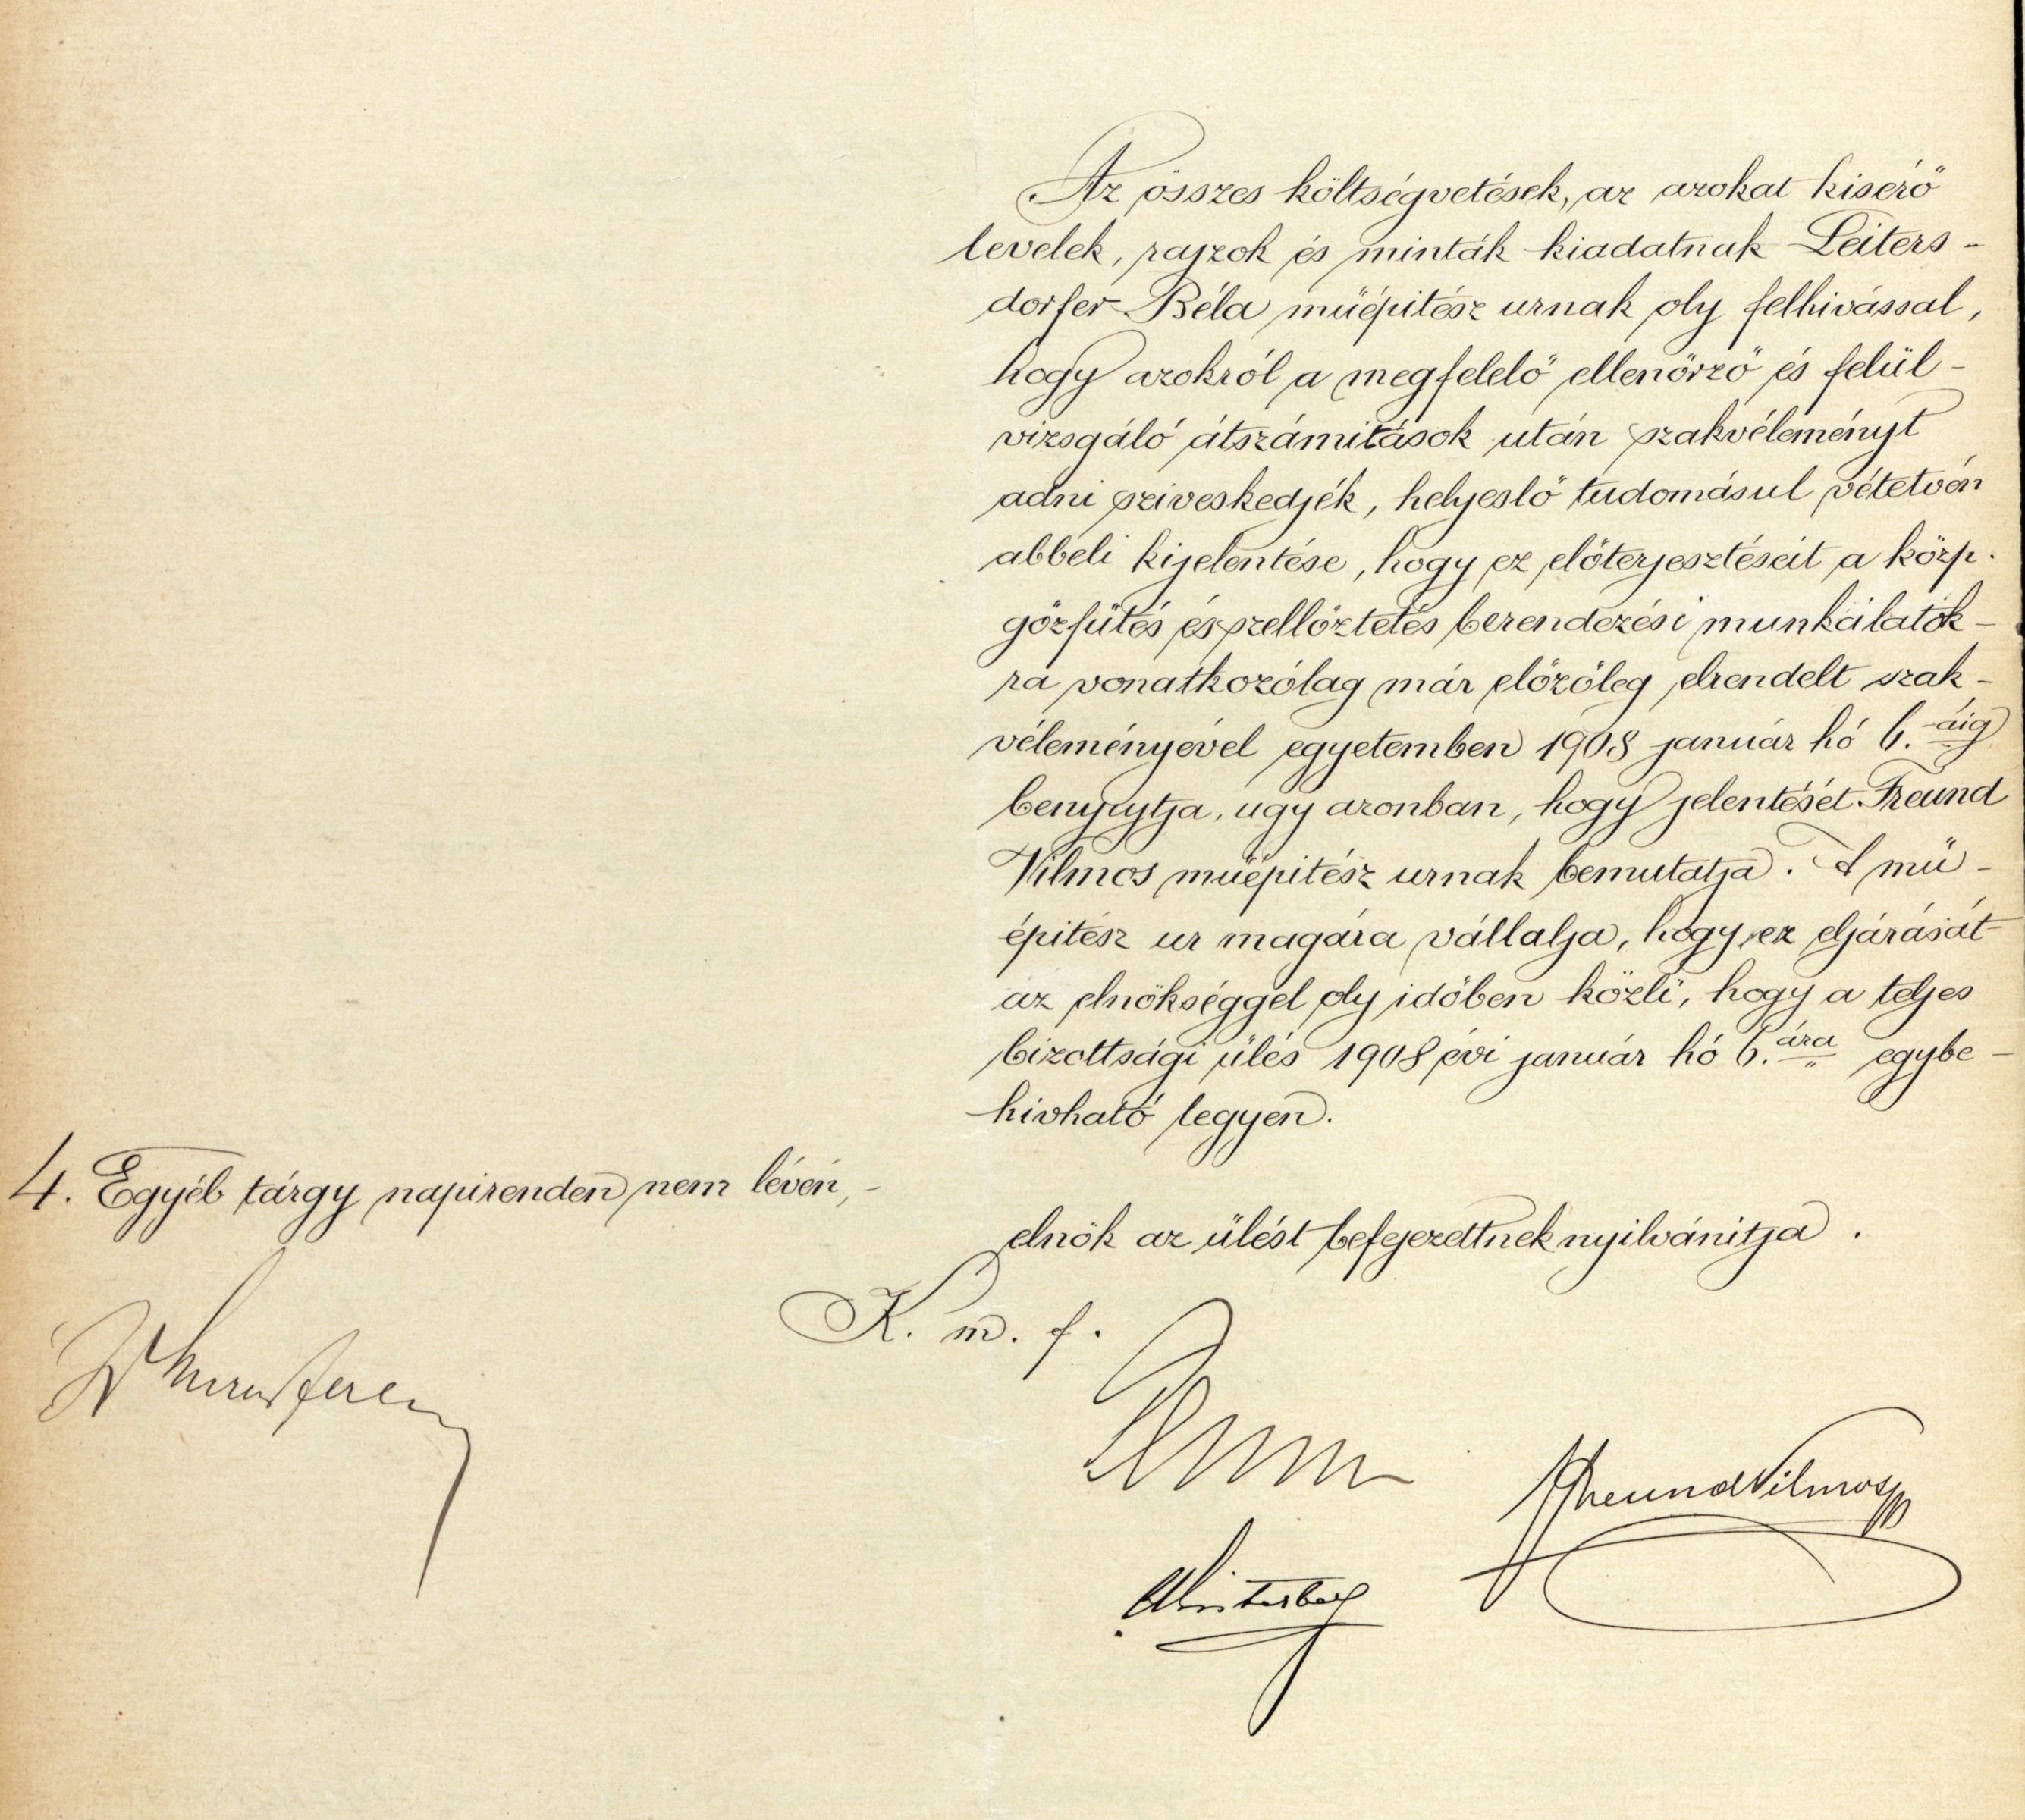 Az összes költségvetések, az azokat kisérő
levelek, rajzok és minták kiadatnak Leiters-
dorfer Béla müépitész urnak oly felhivással,
hogy azokról a megfelelő ellenőrző és felül-
vizsgáló átszámitások után szakvéleményt
adni sziveskedjék, helyeslő tudomásul vétetvén
abbeli kijelentése, hogy ez előterjesztéseit a közp.
gőzfűtés és szellőztetés berendezési munkálatok-
ra vonatkozólag már előzőleg elrendelt szak-
véleményével egyetemben 1908 január hó 6.-áig
benyujtja, ugy azonban, hogy jelentését Freund
Vilmos müépitész urnak bemutatja. A mü-
épitész ur magára vállalja, hogy ez eljárását
az elnökséggel oly időben közli, hogy a teljes
bizottsági ülés 1908 évi január hó 6.ára egybe-
hivható legyen.
4. Egyéb tárgy napirenden nem lévén,-
elnök az ülést befejezettnek nyilvánitja.
K. m. f.
Freund Vilmos